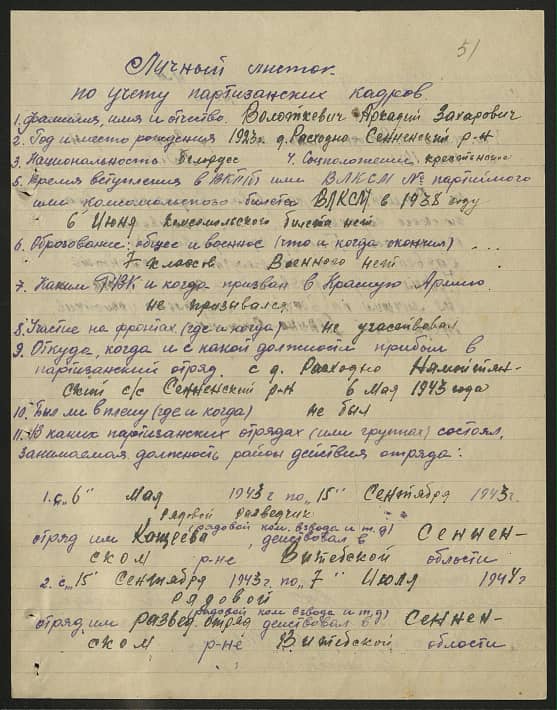 51
Личный листок
по учету партизанских кадров
1. Фамилия, имя и отчество. Волоткевич Аркадий Захарович
2. Год и место рождения 1923г. д. Расходно Сенненский р-н
3. Национальность белорус 4. Соцположение крестьянин
5. Время вступления в ВКП/б/ или ВЛКСМ № партийного
или комсомольского билета ВЛКСМ в 1938 году
6 Июня комсомольского билета нет
6. Образование: общее и военное (что и когда окончил) ...
7-классов Военного нет
7. Каким РВК и когда призван в Красную Армию
не призывался
8. Участие на фронтах (где и когда) не участвовал
9. Откуда, когда и с какой должности прибыл в
партизанский отряд. с д. Расходно
ский с/с Сенненский р-н в Мая 1943 года
10. Был ли в плену (где и когда) не был
11. В каких партизанских отрядах (или группах) состоял,
занимаемая должность районы действия отряда:
1. с „6" Мая 1943г по „15" Сентября 1943г.
рядовой разведчик
(рядовой ком. взвода и т.д)
отряд им Кащеева действовал в Сеннен-
ском р-не Витебской области
2. с „15" Сентября 1943г. по „7" Июля 1944г
рядовой
(рядовой ком взвода и т.д)
отряд им развед. отряд действовал в Сеннен-
ском р-не Витебской области